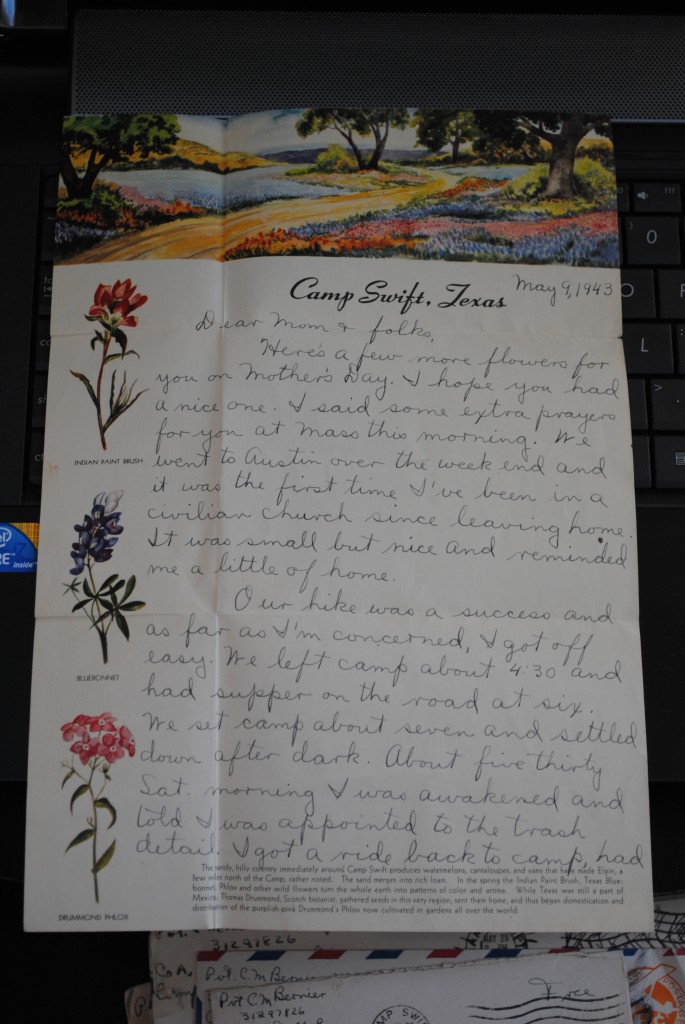 Camp Swift, Texas
May 9, 1943
Dear Mom & folks,
Here's a few more flowers for
you on Mother's Day. I hope you had
a nice one. I said some extra prayers
for you at Mass this morning. We
went to Austin over the week end and
it was the first time I've been in a
civilian church since leaving home.
It was small but nice and reminded
me a little of home.
Our hike was a success and
as far as I'm concerned, I got off
easy. We left camp about 4:30 and
had supper on the road at six.
We set camp about seven and settled
down after dark. About five thirty
Sat. morning I was awakened and
told I was appointed to the trash
detail. I got a ride back to camp, had
INDIAN PAINT BRUSH
BLUEBONNET
DRUMMOND PHLOX
The sandy, hilly country immediately around Camp Swift produces watermelons, cantaloupes, and yams that have made Elgin, a
few miles north of the Camp, rather noted. The sand merges into rich loam. In the spring the Indian Paint Brush, Texas Blue-
bonnet, Phlox and other wild flowers turn the whole earth into patterns of color and aroma. While Texas was still a part of
Mexico, Thomas Drummond, Scotch botanist, gathered seeds in this very region, sent them home, and thus began domestication and
distribution of the purplish-pink Drummond's Phlox now cultivated in gardens all over the world.
31297826
Co A,
Camp
Pvt. C M Bernier
Pvt C M Bernier
31297826
Free
MP SWI
O
L
intel
inside